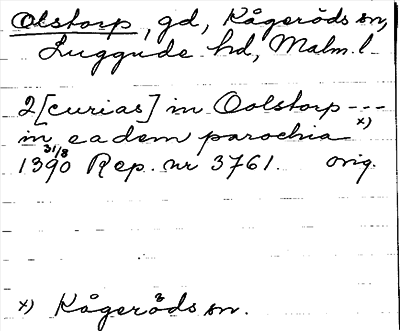 Olstorp, gd, Kågeröds sn,
Luggude hd, Malm. l.
2 [curias] in Oolstorp ---
in eadem parochia x)
1390 31/8 Rep. nr 3761. orig.
x) Kågeröds sn.